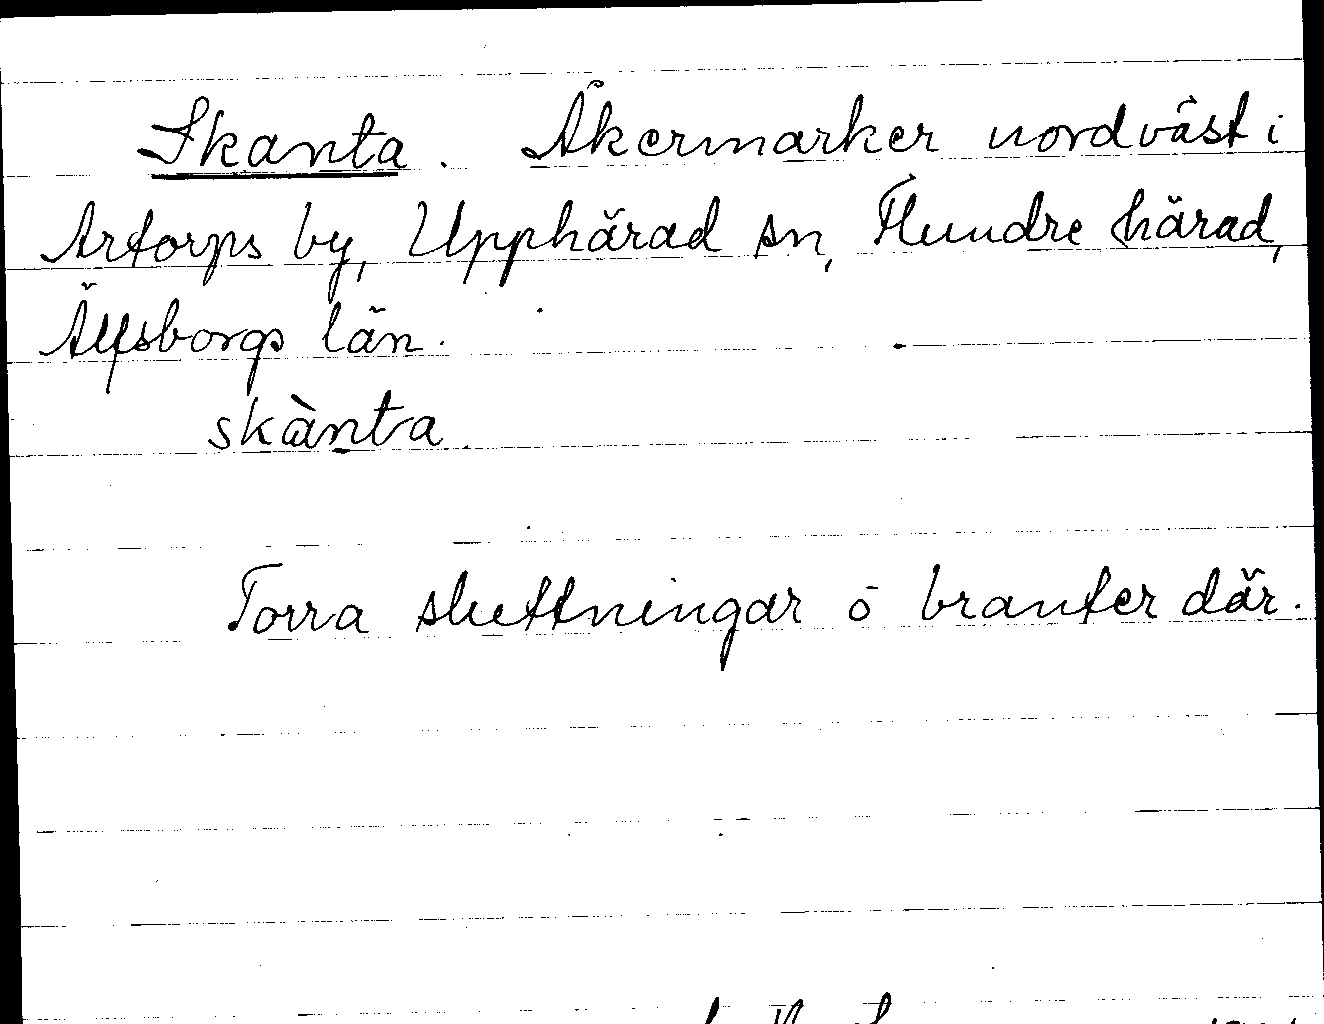 Skanta. Åkermarker nordväst i
Artorps by, Upphärad sn, Flundre härad,
Älfsborgs län.
skànta
Torra sluttningar o branter där.